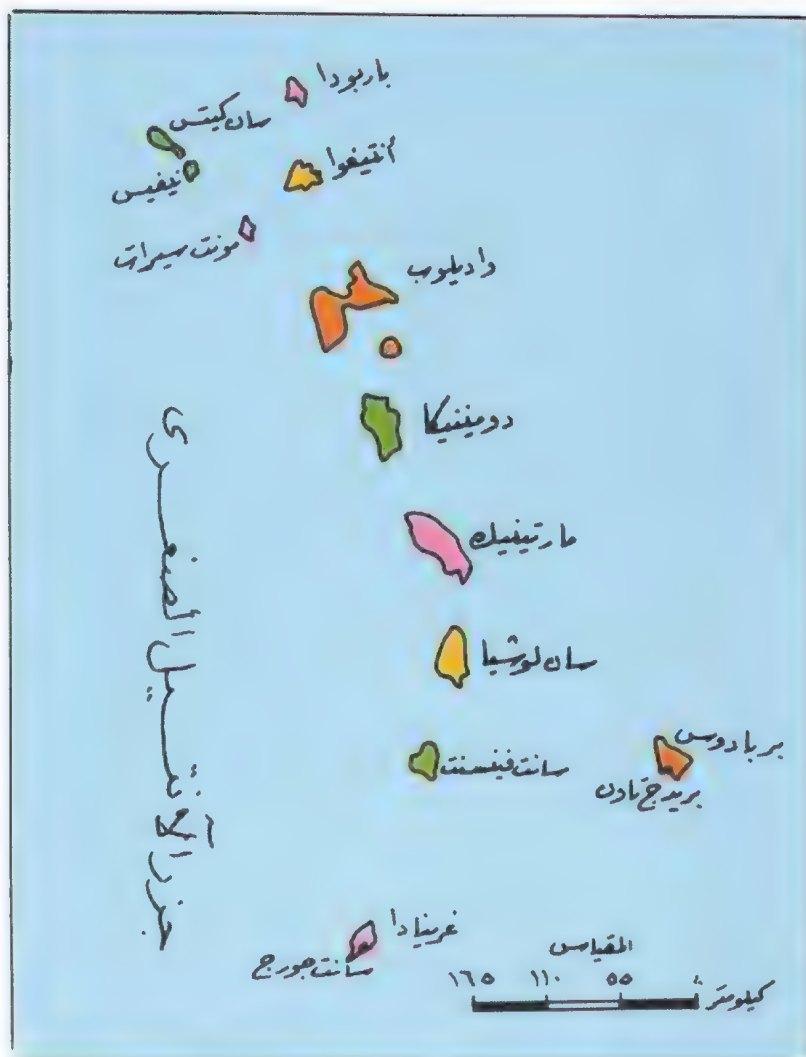 باربودا
سان كيتس
أنتيغوا
نيفيس
مونت سيرات
وادبلوب
دومينيكا
مارتينيك
سان لوشيا
سانت فينسنت
بربادوس
بريدج تاون
غرينادا
سانت جورج
جزر الأنتيل الصغرى
المقياس
١٦٥ ١١٠ ٥٥ ٠
كيلومتر